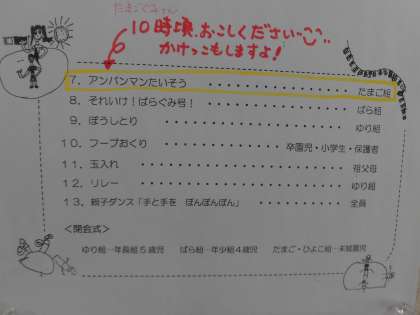 たまごぐみさん
10時頃、おこしください
かけっこもしますよ!
7. アンパンマンたいそう ・・・・・・・・・・・・・ たまご組
8. それいけ!ばらぐみ号! ・・・・・・・・・・・・ ばら組
9. ぼうしとり ・・・・・・・・・・・・・・・・・ ゆり組
10. フープおくり ・・・・・・・・・ 卒園児・小学生・保護者
11. 玉入れ ・・・・・・・・・・・・・・・・・・ 祖父母
12. リレー ・・・・・・・・・・・・・・・・・・ ゆり組
13. 親子ダンス「手と手を ぽんぽんぽん」 ・・・・・・・ 全員
<閉会式>
ゆり組―年長組5歳児 ばら組―年少組4歳児 たまご・ひよこ組―未就園児